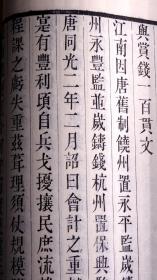 與賞錢一百貫文
江南因唐舊制饒州置永平監歲
州永豐監並歲鑄錢杭州置保興
唐同光二年二月詔曰會計之重
寔有豐利頃自兵戈擾攘民庶流
程課之虧失重茲葺理須仗規模